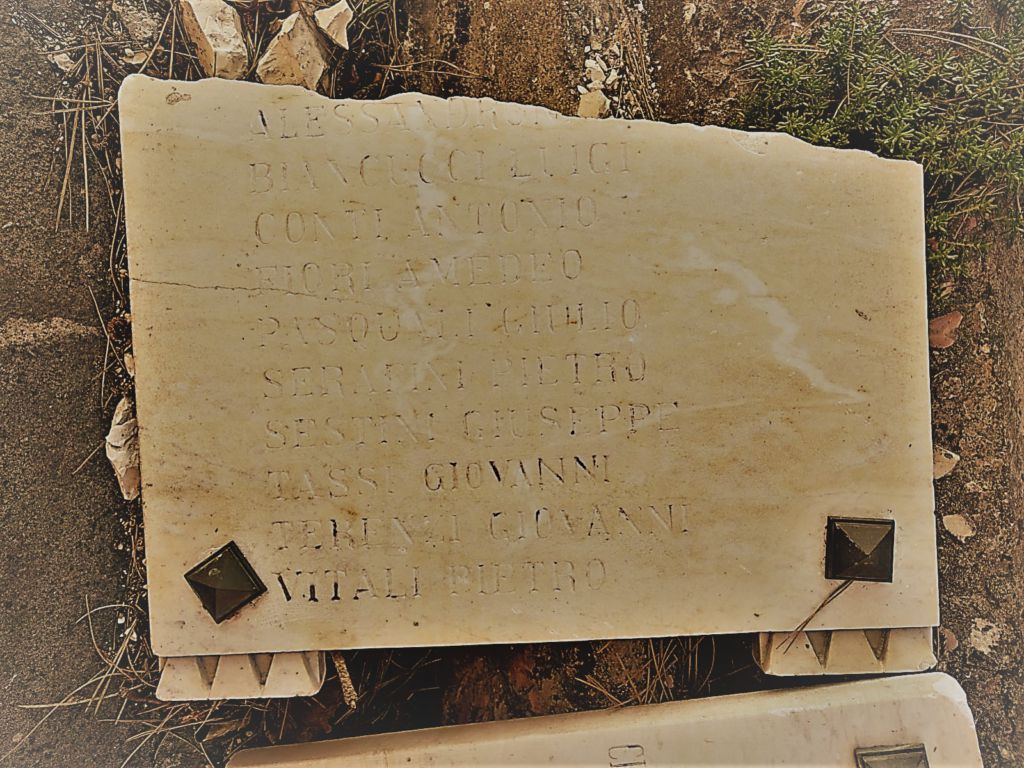 ALESSANDRONI
BIANCUCCI LUIGI
CONTI ANTONIO
FIORI AMEDEO
PASQUALI GIULIO
SERAFINI PIETRO
SESTINI GIUSEPPE
TASSI GIOVANNI
TERENZI GIOVANNI
VITALI PIETRO